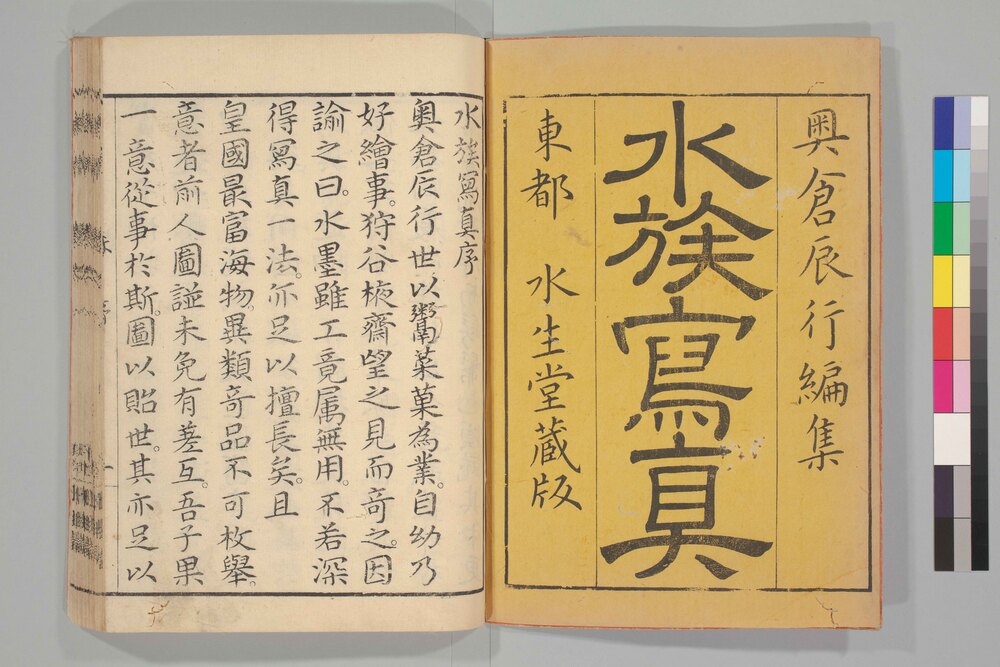 奥倉辰行編集
水族寫真
東都 水生堂蔵版
水族寫真序
奥倉辰行世以鬻菜菓為業。自幼乃
好繪事。狩谷棭齋望之見而竒之。因
諭之曰。水墨雖工竟属無用。不若深
得寫真一法。亦足以擅長矣。且
皇國最富海物。異類竒品不可枚舉。
意者前人圖諡未免有差互。吾子果
一意從事於斯。圖以貽世。其亦足以